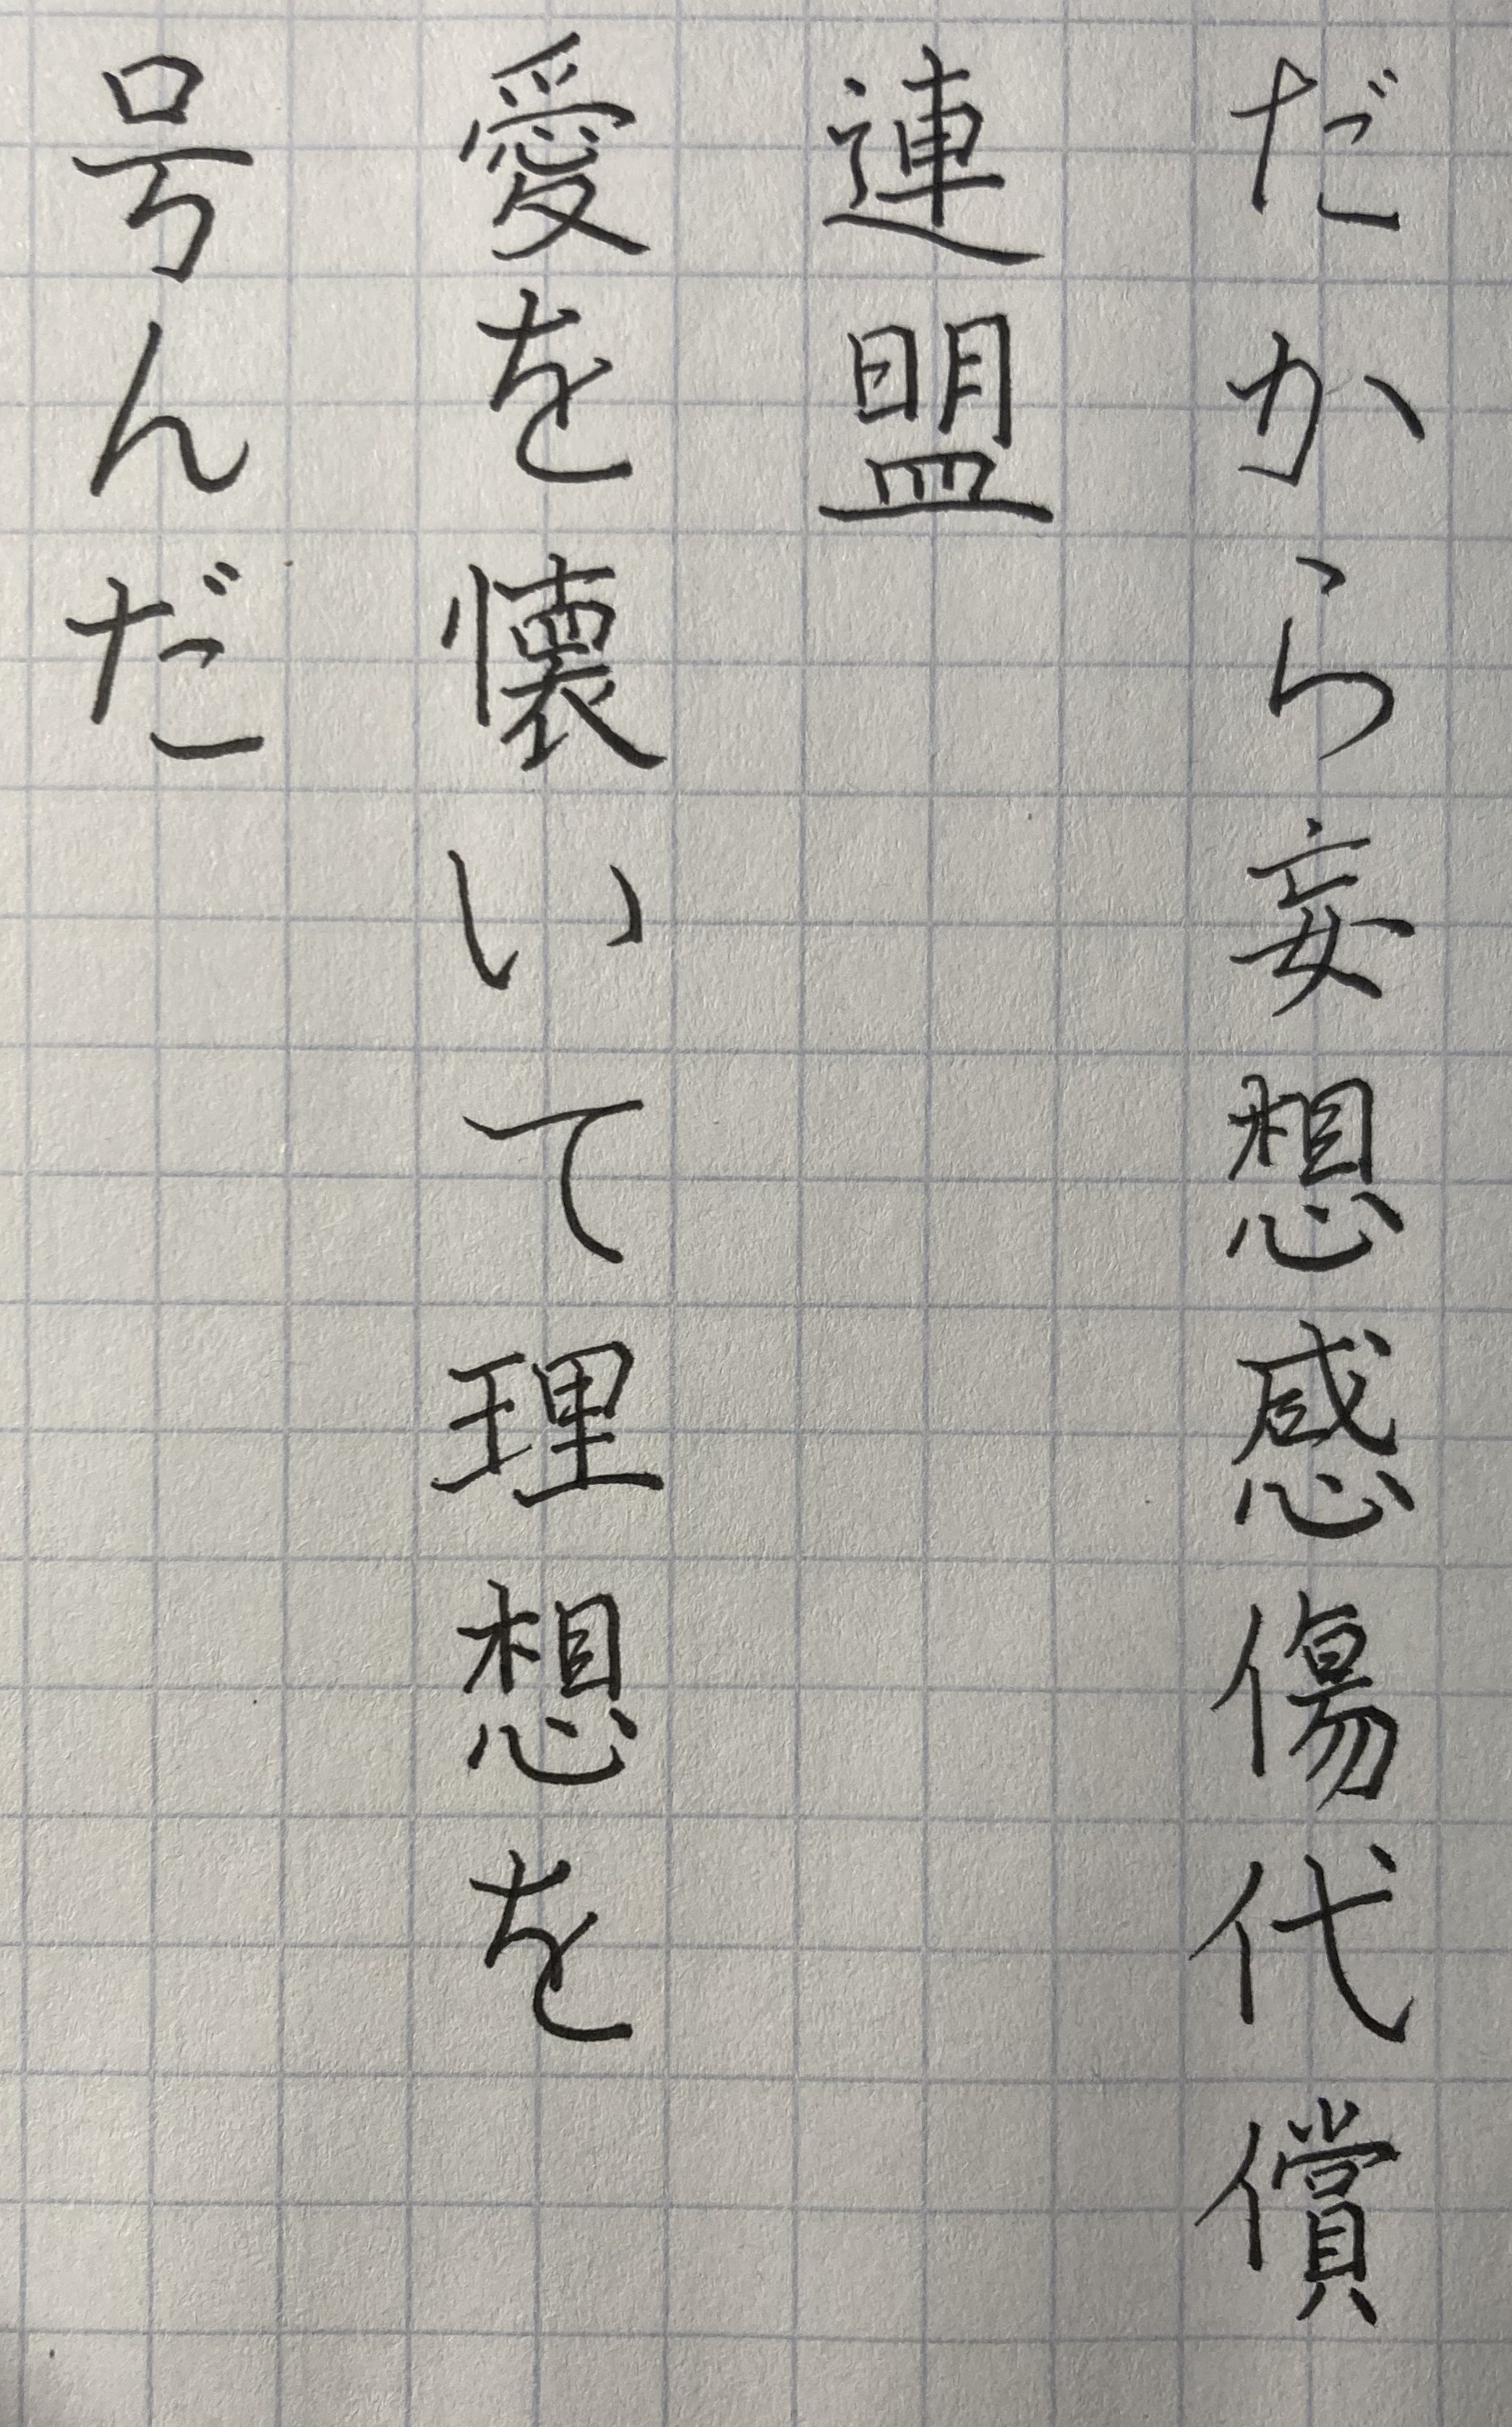 だから妄想感傷代償
連盟
愛を懐いて理想を
号んだ